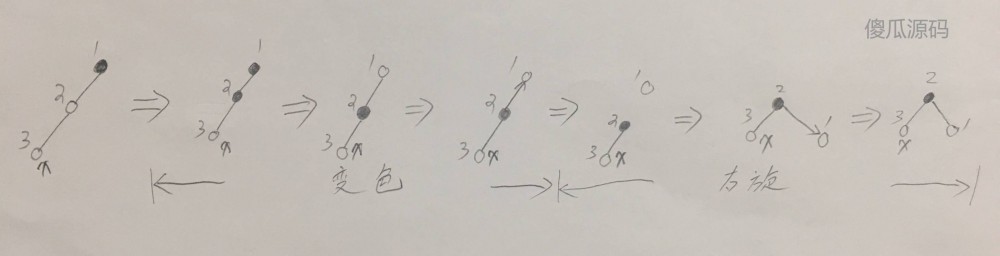 傻瓜源码
1 2 3 x
1 2 3 x
1 2 3 x
1 2 3 x
1 2 3 x
2 3 x 1
2 3 x 1
变色
右旋